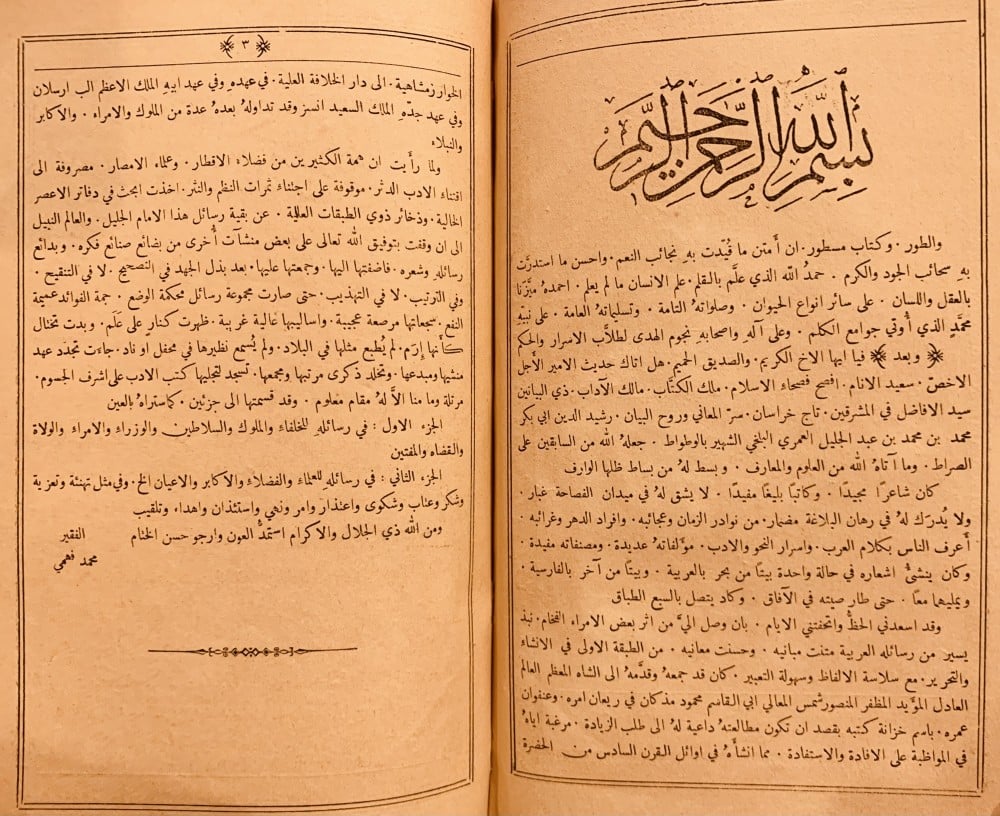 بسم الله الرحمن الرحيم
والطور . وكتاب مسطور . ان أَمتن ما قُيّدت بهِ نجائب النعم . واحسن ما استدرَّت
بهِ سحائب الجود والكرم . حمدُ الله الذي علَّم بالقلم . علم الانسان ما لم يعلم . احمدهُ ميَّزنا
بالعقل واللسان . على سائر انواع الحيوان . وصلواتهُ التامة . وتسليماتهُ العامة . على نبيّهِ
محمَّدٍ الذي أُوتي جوامع الكلم . وعلى آلهِ واصحابهِ نجوم الهدى لطلَّاب الاسرار والحكم
﴿ وبعد ﴾ فيا ايها الاخ الكريم . والصديق الحميم . هل اتاك حديث الامير الأجل
الاخصّ . سعيد الانام . افصح فصحاء الاسلام . ملك الكتَّاب . مالك الآداب . ذي البيانين
سيد الافاضل في المشرقين . تاج خراسان . سرّ المعاني وروح البيان . رشيد الدين ابي بكر
محمد بن محمد بن عبد الجليل العمري البلخي الشهير بالوطواط . جعلهُ الله من السابقين على
الصراط . وما آتاهُ الله من العلوم والمعارف . وبسط لهُ من بساط ظلها الوارف
كان شاعرًا مجيدًا . وكاتبًا بليغًا مفيدًا . لا يشق لهُ في ميدان الفصاحة غبار .
ولا يُدرَك لهُ في رهان البلاغة مضمار . من نوادر الزمان وعجائبه . وافراد الدهر وغرائبه .
أعرف الناس بكلام العرب . واسرار النحو والادب . مؤَلفاتهُ عديدة . ومصنفاته مفيدة .
وكان ينشئُ اشعاره في حالة واحدة بيتًا من بحر بالعربية . وبيتًا من آخر بالفارسية .
ويمليهما معًا . حتى طار صيته في الآفاق . وكاد يتصل بالسبع الطباق
وقد اسعدني الحظُّ واتحفتني الايام . بان وصل اليَّ من اثر بعض الامراء الفخام . نبذ
يسير من رسائله العربية متنت مبانيه . وحسنت معانيه . من الطبقة الاولى في الانشاء
والتحرير . مع سلاسة الالفاظ وسهولة التعبير . كان قد جمعهُ وقدَّمهُ الى الشاه المعظم العالم
العادل المؤَيد المظفر المنصور شمس المعالي ابي القاسم محمود مذ كان في ريعان امره . وعنفوان
عمره . باسم خزانة كتبه بقصد ان تكون مطالعتهُ داعية لهُ الى طلب الزيادة . مرغبة اياهُ
في المواظبة على الافادة والاستفادة . مما انشأَهُ في اوائل القرن السادس من الحضرة
﴿ ٣ ﴾
الخوارزمشاهية . الى دار الخلافة العلية . في عهدهِ وفي عهد ابيهِ الملك الاعظم الب ارسلان
وفي عهد جدّهِ الملك السعيد اتسز وقد تداولهُ بعدهُ عدة من الملوك والامراء . والاكابر
والنبلاء
ولما رأَيت ان همة الكثيرين من فضلاء الاقطار . وعلماء الامصار . مصروفة الى
اقتناء الادب الدثر . موقوفة على اجتناء ثمرات النظم والنثر . اخذت ابحث في دفاتر الاعصر
الخالية . وذخائر ذوي الطبقات العالية . عن بقية رسائل هذا الامام الجليل . والعالم النبيل
الى ان وقفت بتوفيق الله تعالى على بعض منشآت أُخرى من بضائع صنائع فكره . وبدائع
رسائله وشعره . فاضفتها اليها . وجمعتها عليها . بعد بذل الجهد في التصحيح . لا في التنقيح .
وفي الترتيب . لا في التهذيب . حتى صارت مجموعة رسائل محكمة الوضع . جمة الفوائد عميمة
النفع . سجعاتها مرصعة عجيبة . واساليبها غالية غريبة . ظهرت كنارٍ على عَلَم . وبدت تختال
كأَنها إرَم . لم يُطبع مثلها في البلاد . ولم يُسمع نظيرها في محفل او ناد . جاءت تجدّد عهد
منشيها ومبدعها . وتخلد ذكرى مرتبها ومجمعها . تسجد لتجليها كتب الادب على اشرف الجسوم .
مرتلة وما منا الَّا لهُ مقام معلوم . وقد قسمتها الى جزئين . كما ستراهُ بالعين
الجزء الاول : في رسائلهِ للخلفاء والملوك والسلاطين والوزراء والامراء والولاة
والقضاه والمفتين
الجزء الثاني : في رسائله للعلماء والفضلاء والاكابر والاعيان الخ . وفي مثل تهنئة وتعزية
وشكر وعتاب وشكوى واعتذار وامر ونهي واستئذان واهداء وتلقيب
ومن الله ذي الجلال والاكرام استمدُّ العون وارجو حسن الختام
الفقير
محمد فهمي